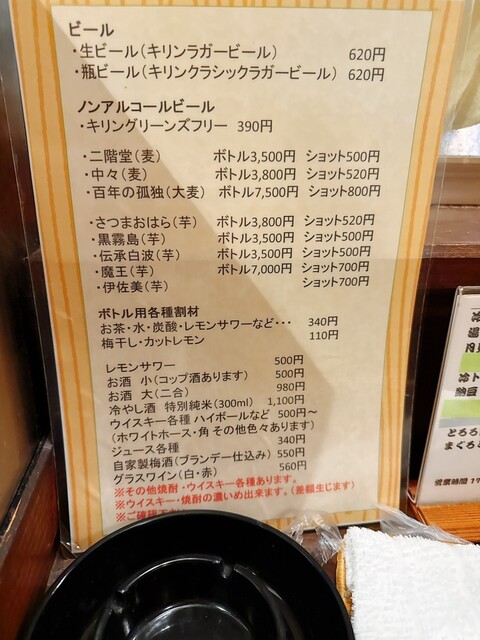 ビール
・生ビール(キリンラガービール) 620円
・瓶ビール(キリンクラシックラガービール) 620円
ノンアルコールビール
・キリングリーンズフリー 390円
・二階堂(麦) ボトル3,500円 ショット500円
・中々(麦) ボトル3,800円 ショット520円
・百年の孤独(大麦) ボトル7,500円 ショット800円
・さつまおはら(芋) ボトル3,800円 ショット520円
・黒霧島(芋) ボトル3,500円 ショット500円
・伝承白波(芋) ボトル3,500円 ショット500円
・魔王(芋) ボトル7,000円 ショット700円
・伊佐美(芋) ショット700円
ボトル用各種割材
お茶・水・炭酸・レモンサワーなど・・・ 340円
梅干し・カットレモン 110円
レモンサワー 500円
お酒 小(コップ酒あります) 500円
お酒 大(二合) 980円
冷やし酒 特別純米(300ml) 1,100円
ウイスキー各種 ハイボールなど 500円～
(ホワイトホース・角 その他色々あります)
ジュース各種 340円
自家製梅酒(ブランデー仕込み) 550円
グラスワイン(白・赤) 560円
※その他焼酎・ウイスキー各種あります。
※ウイスキー・焼酎の濃いめ出来ます。(差額生じます)
※ご確認下さ
冷
湯
冷ト
納豆
とろろ
まぐろ
営業時間